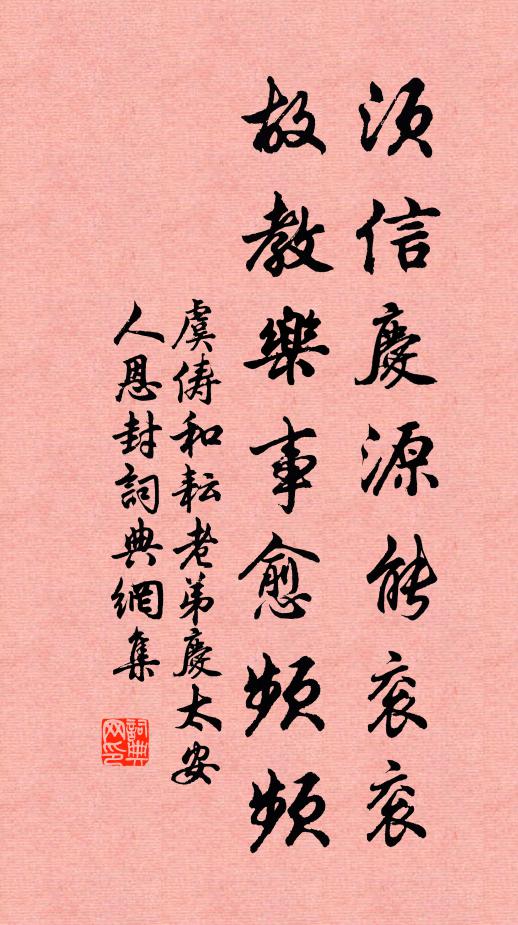 須信慶源能衮衮
故教樂事愈頻頻
虞儔和耘老弟慶太安
人恩封詞典網集
詞典網印